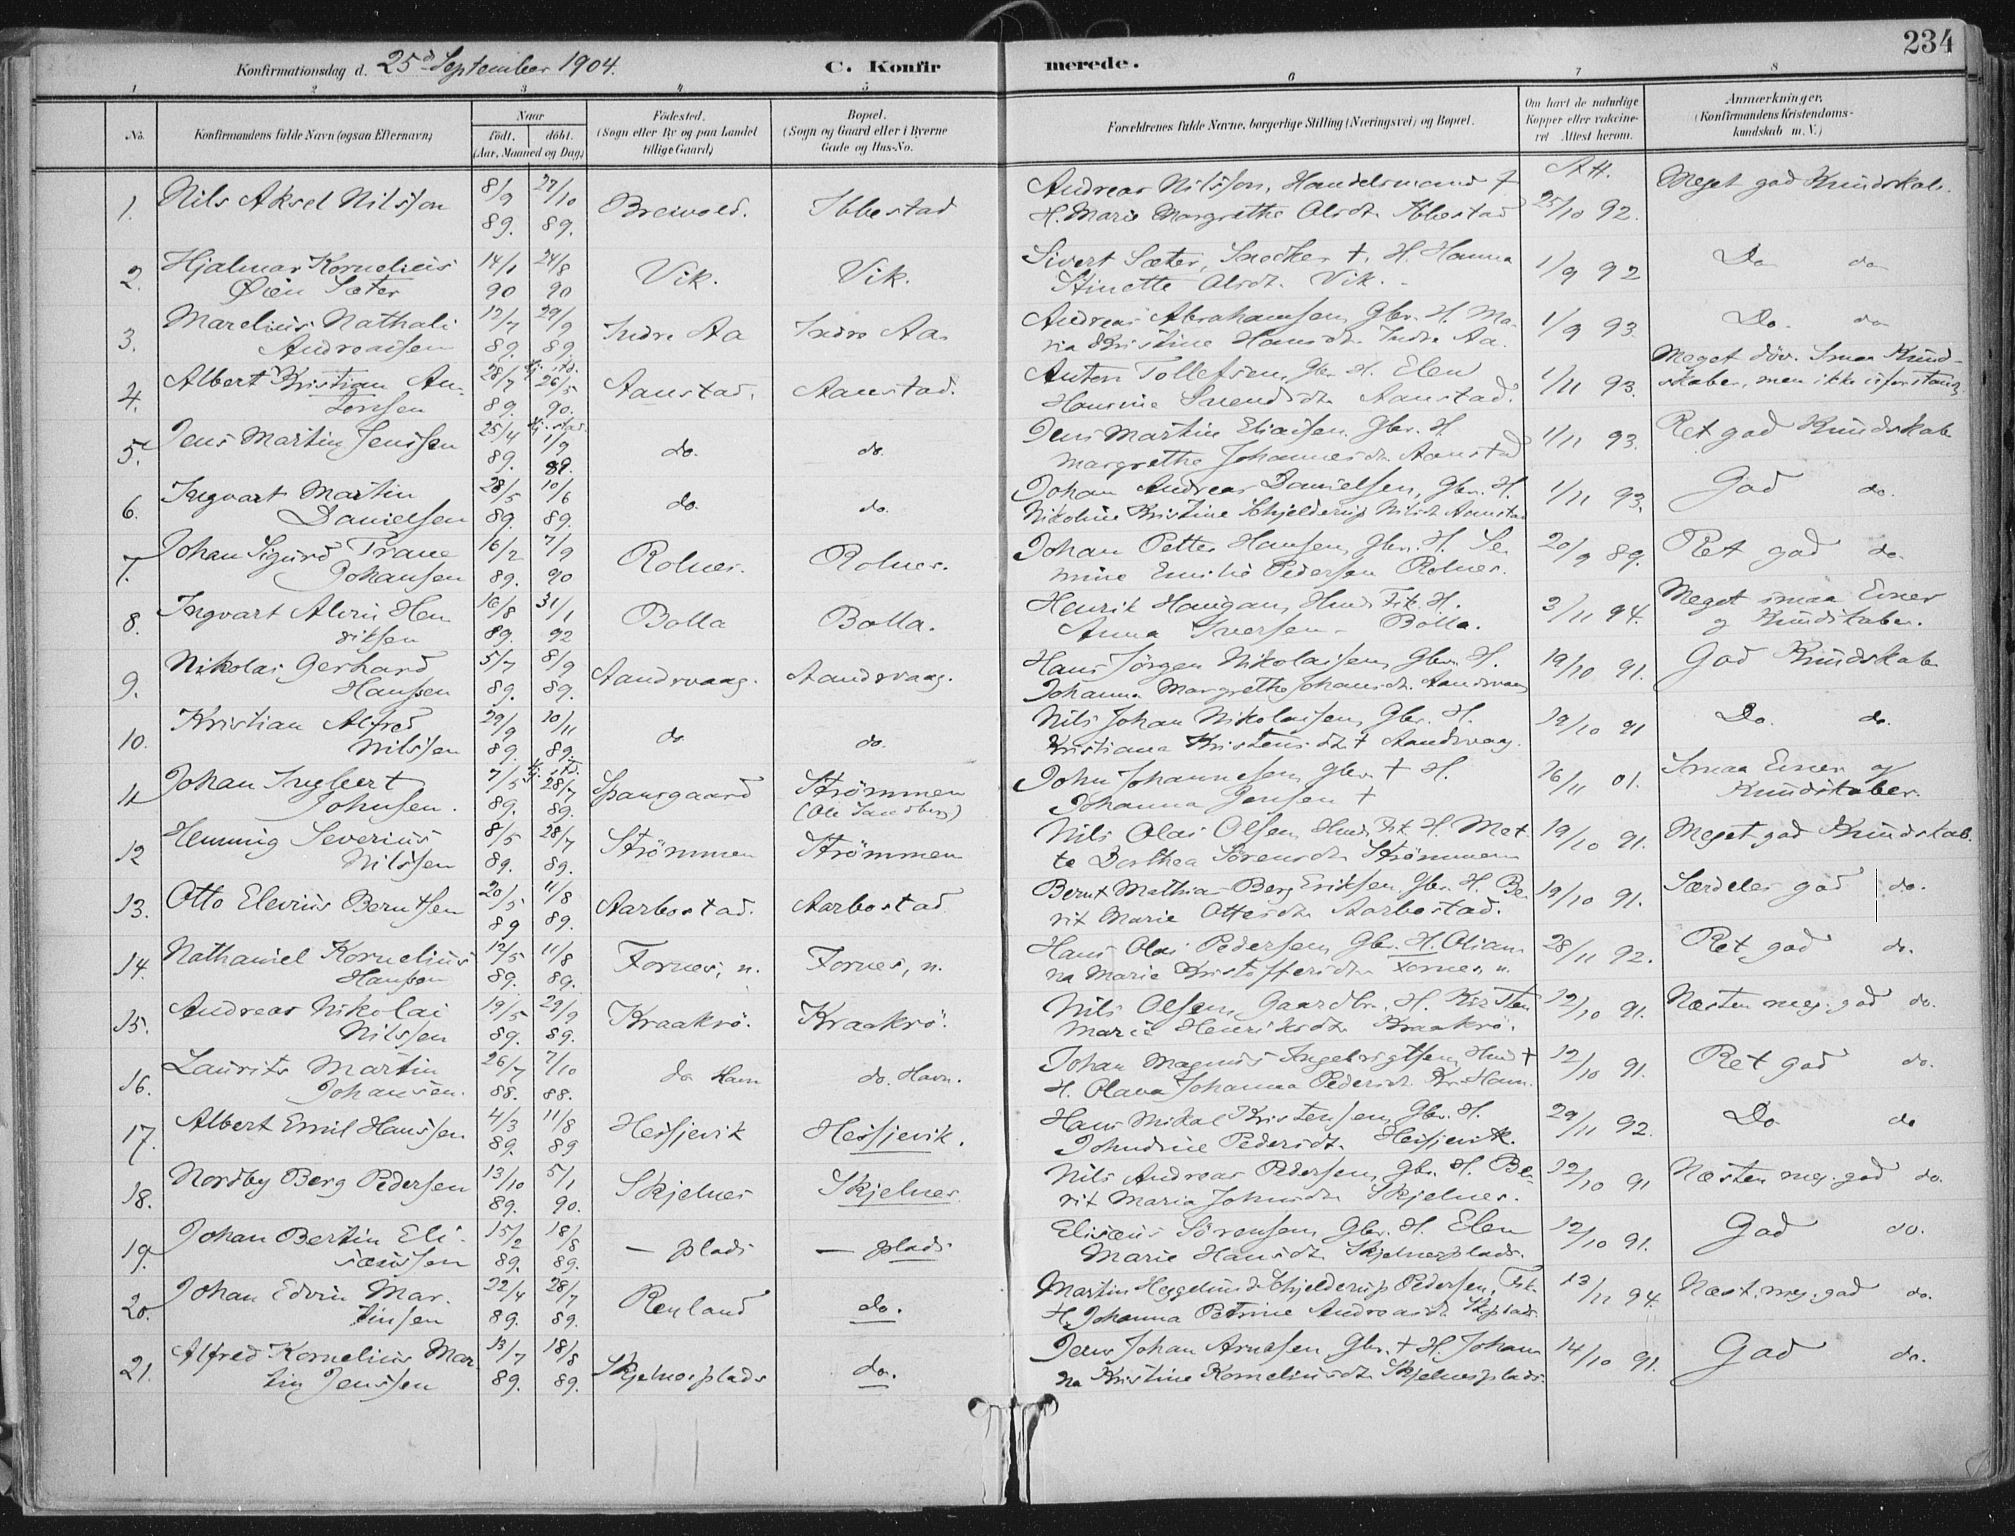 234
Konfirmationsdag d. 25d September 1904. C. Konfirmerede.
1 2 3 4 5 6 7 8
No. Konfirmandens fulde Navn (ogsaa Efternavn) Naar født. døbt. (Aar, Maaned og Dag) Fødested. (Sogn eller By og paa Landet tillige Gaard) Bopæl. (Sogn og Gaard eller i Byerne Gade og Hus-No. Forældrenes fulde Navne, borgerlige Stilling (Næringsvei) og Bopæl. Om havt de naturlige Kopper eller vaccineret. Attest herom. Anmærkninger. (Konfirmandens Kristendomskundskab m. V.)
1. Nils Aksel Nilsson 8/9 89. 27/10 89. Breivold. Ibbestad Andreas Nilsson, Handelsmand † Att. 25/10 92. Meget god Kundskab.
H. Marie Margrethe Olsdt. Ibbestad
2. Hjalmar Kornelius 14/1 90 24/8 90 Vik. Vik. Sivert Sæter, Snedker †, H. Hanna 1/9 92 Do do
Øien Sæter Stinette Olsdt. Vik.
3. Marelius Nathali 12/7 89. 29/9 89. Indre Aa Indre Aa. Andreas Abrahamsen, Gbr. H. Ma- 1/9 93. Do. do
Andreassen ria Kristine Hansdt. Indre Aa.
4. Albert Kristian An- 28/7 89. 26/5 90. Aanstad. Aanstad. Anton Tollefsen, Gbr. H. Elen 1/11 93. Meget døv. Smaa Kund-
tonsen Hansine Svendsdt. Aanstad. skaber, men ikke uforstand.
5. Jens Martin Jenssen 25/4 89. 1/9 89. do. do. Jens Martin Eliassen, Gbr. H. 1/11 93. Ret god Kundskab
Margrethe Johannesdt. Aanstad
6. Ingvart Martin 28/5 89. 10/6 89. do. do. Johan Andreas Danielsen, Gbr. H. 1/11 93. God do.
Danielsen Nikoline Kristine Schjelderup Nilsdt. Aanstad
7. Johan Sigurd Trane 16/2 89. 7/9 90 Rolnes. Rolnes. Johan Petter Hansen, Gbr. H. Se- 20/9 89. Ret god do.
Johansen mine Emilie Pedersen Rolnes.
8. Ingvart Alvin Hen- 16/8 89. 31/1 92 Bolla Bolla. Henrik Haugan, Hmd. Fisk. H. 3/11 94. Meget smaa Evner
riksen Anna Iversen - Bolla. og Kundskaber.
9. Nikolai Gerhard 5/7 89. 8/9 89. Aandsvaag. Aandsvaag. Hans Jørgen Nikolaisen, Gbr. H. 19/10 91. God Kundskab
Hanssen Johanna Margrethe Johansdt. Aandsvaag
10. Kristian Alfred 29/9 89. 10/11 89. do do. Nils Johan Nikolaisen, Gbr. H. 19/10 91 Do. do.
Nilssen Kristiana Kristensdt. † Aandsvaag.
11 Johan Ingbert 7/5 89. 28/7 89. Spansgaard Strømmen John Johannesen, Gbr. † H. 26/11 01. Smaa Evner og
Johnsen. (Ole Sandberg) Johanna Jensen † Kundskaber.
12 Henning Severius 8/5 89. 28/7 89. Strømmen Strømmen Nils Olai Olsen, Hmd. Fisk. H. Met- 19/10 91. Meget god Kundskab.
Nilssen te Dorthea Sørensdt. Strømmen
13. Otto Elevius Berntsen 20/5 89 11/8 89. Aarbostad. Aarbostad Bernt Mathias Berg Eriksen, Gbr. H. Be- 19/10 91. Særdeles god do.
rit Marie Ottesdt. Aarbostad.
14. Nathaniel Kornelius 12/5 89. 11/8 89. Fornes, n. Fornes, n. Hans Olai Pedersen, Gbr. H. Olian- 28/11 92. Ret god do.
Hanssen na Marie Kristoffersdt. Fornes, n.
15. Andreas Nikolai 19/5 89. 29/9 89. Kraakrø. Kraakrø. Nils Olsen, Gaardbr. H. Kirsten 12/10 91. Næsten meg. god do.
Nilssen Marie Henriksdt. Kraakrø.
16. Laurits Martin 26/7 88. 7/10 88. do Havn do. Havn. Johan Magnus Ingebrigtsen, Hmd † 12/10 91. Ret god do.
Johansen. H. Olava Johanna Pedersdt. Kr. Havn.
17. Albert Emil Hanssen 4/3 89. 11/8 89 Hessjevik Hessjevik. Hans Mikal Kristensen, Gbr. H. 29/11 92. Do do
Johndine Pedersdt. Hessjevik.
18. Nordby Berg Pedersen 13/10 89. 5/1 90. Skjelnes Skjelnes. Nils Andreas Pedersen, Gbr. H. Be- 12/10 91 Næsten meg. god do.
rit Maria Johnsdt. Skjelnes.
19. Johan Bertin Eli- 15/2 89. 18/8 89. — plads — plads Elisæus Sørensen, Gbr. H. Elen 12/10 91. God do.
sæussen Marie Hansdt. Skjelnesplads.
20. Johan Edvin Mar- 22/4 89. 28/7 89. Renland do. Martin Heggelund Schjelderup Pedersen, Fisk. 13/11 94. Næst. meg. god do.
tinsen H. Johanna Petrine Andreasdt. Skj.plads.
21. Alfred Kornelius Mar- 13/7 89. 18/8 89. Skjelnesplads do. Jens Johan Arnesen, Gbr. † H. Johan- 14/10 91. God do.
tin Jenssen na Kristine Korneliusdt. Skjelnesplads.